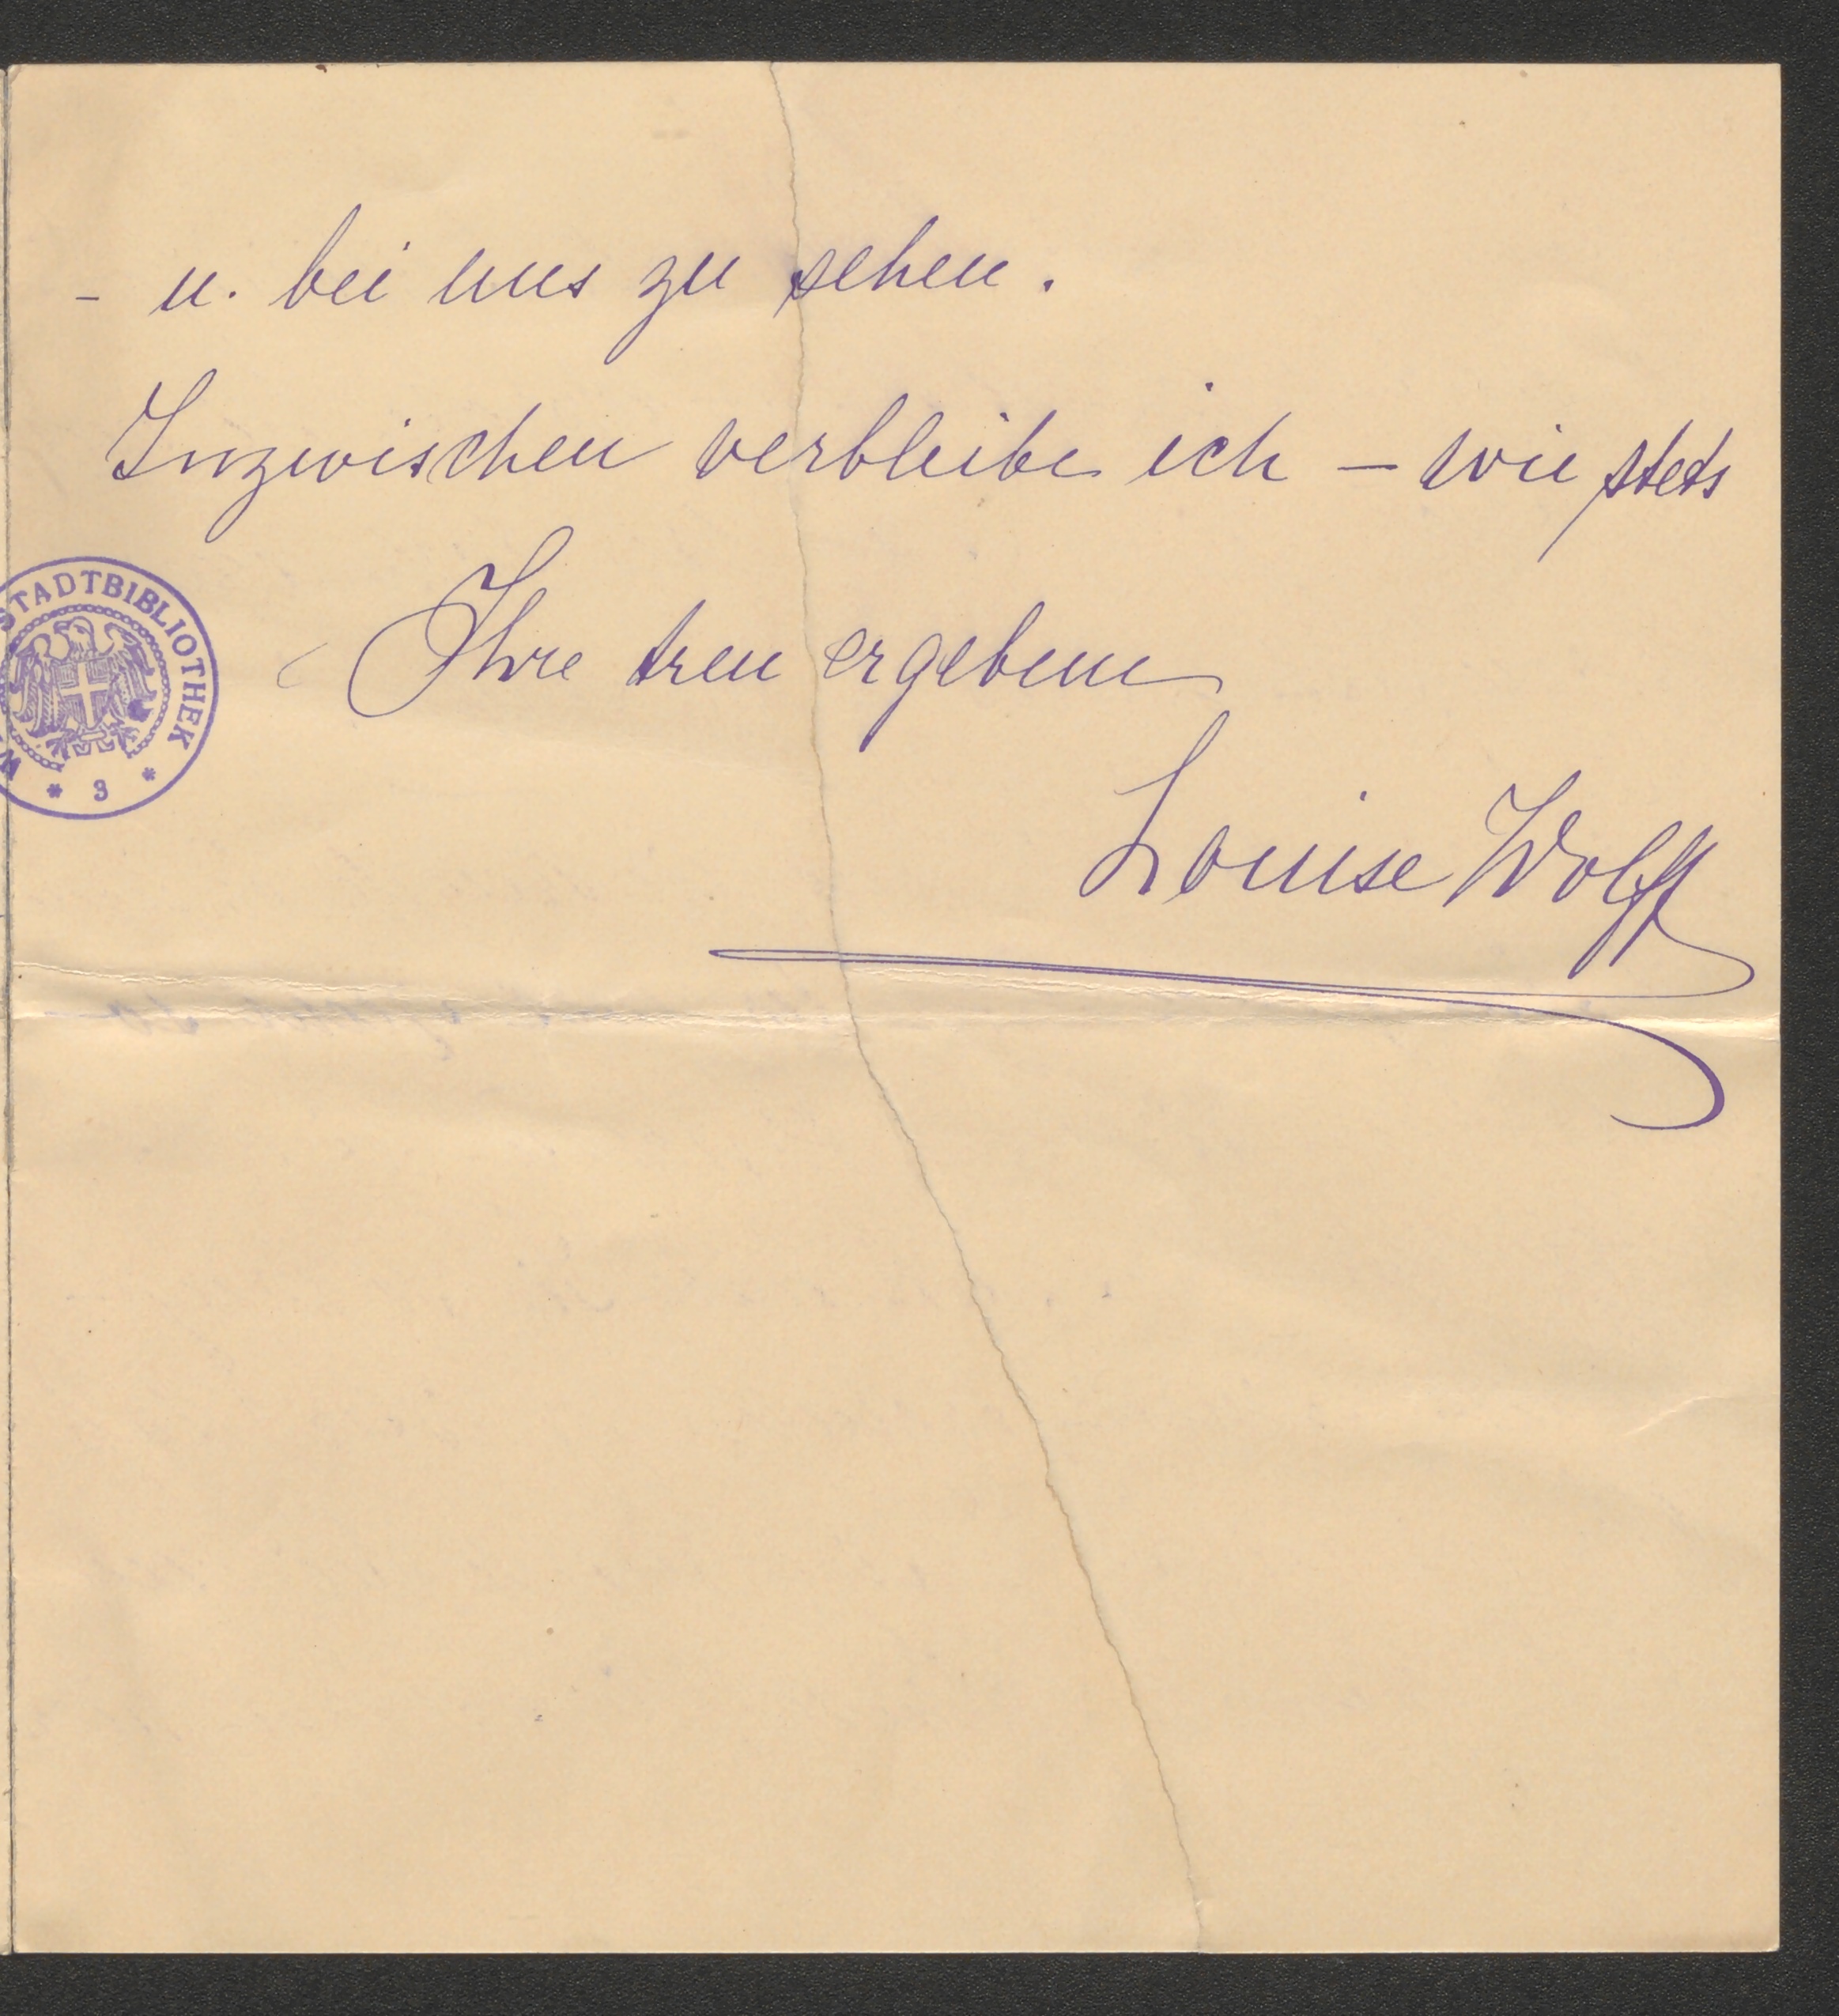 - u. bei uns zu sehen.
Inzwischen verbleibe ich – wie stets
Ihre treu ergebene
Louise Wolff
STADTBIBLIOTHEK
* 3 *